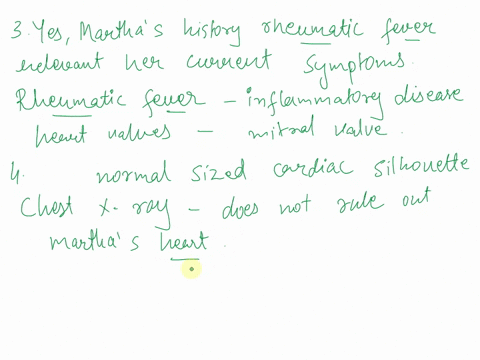 3. Yes, Martha's history rheumatic fever
relevant her current symptoms.
Rheumatic fever - inflammatory disease
heart valves - mitral valve.
4. normal sized cardiac silhouette
Chest X-ray - does not rule out
Martha's heart.